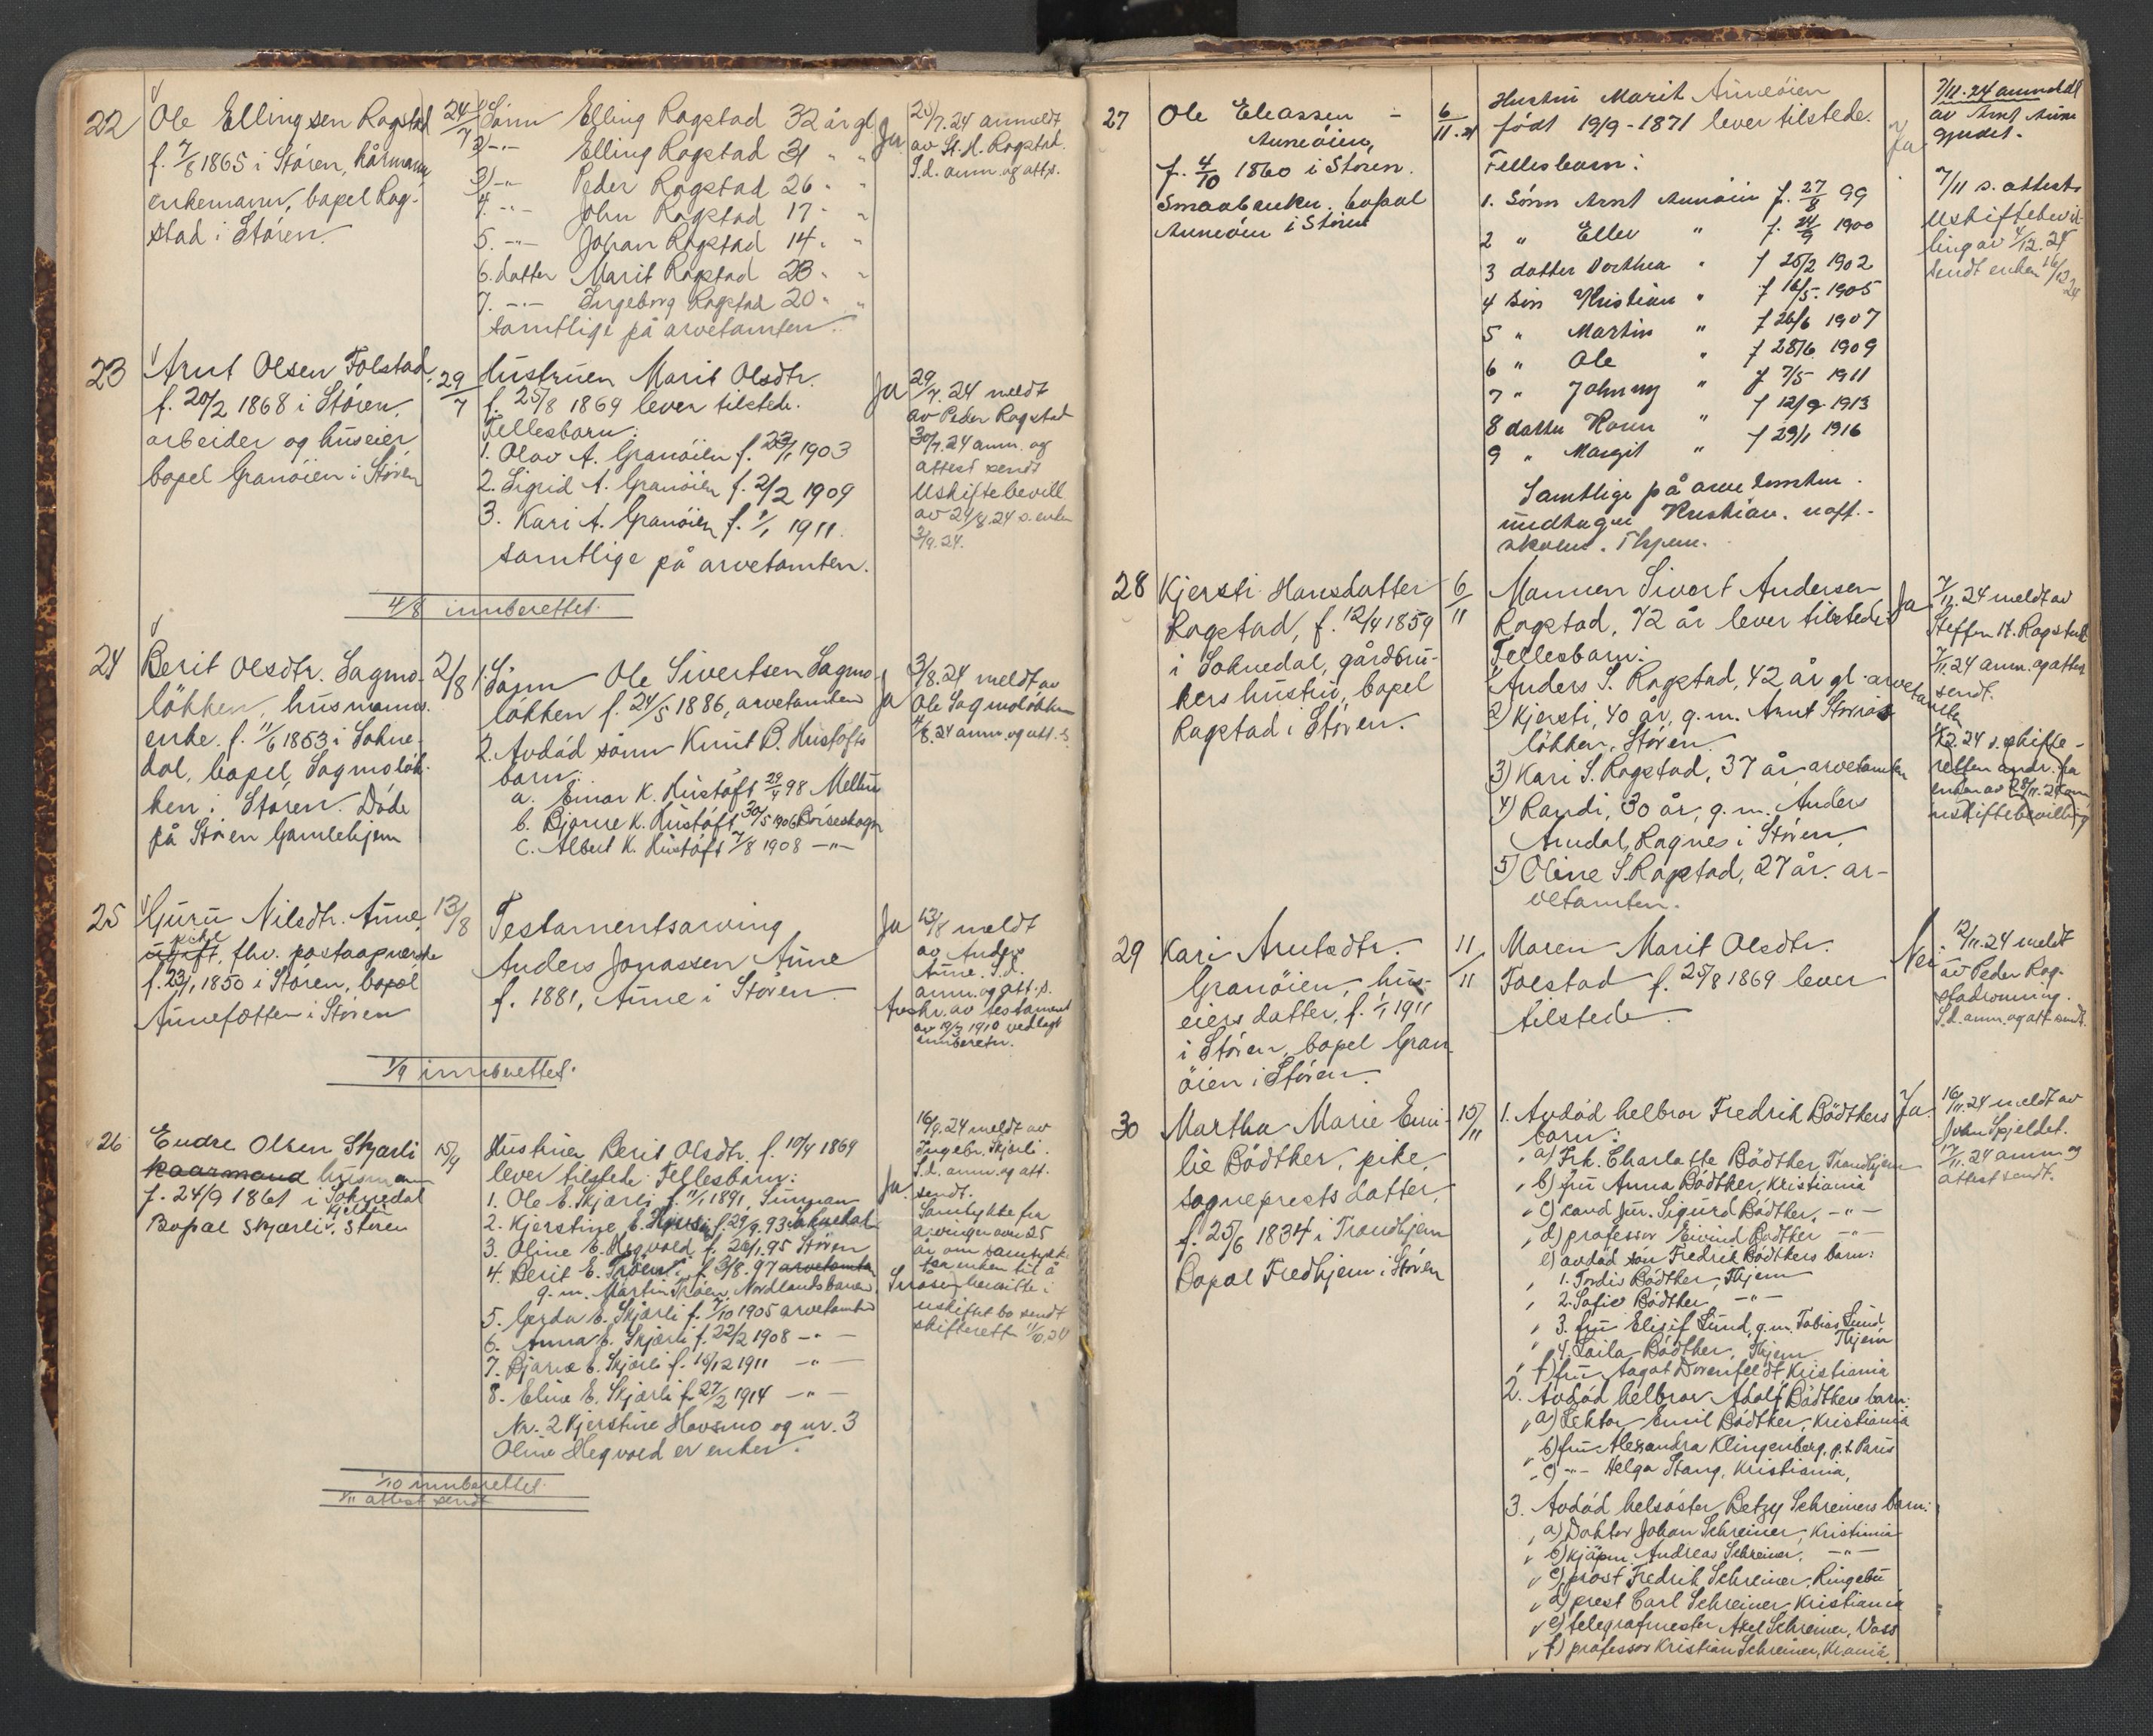 22
Ole Ellingsen Rogstad
f. 7/8 1865 i Stören, kårmann,
enkemann, bopel Rog-
stad i Stören.
24/7
1) Sönn Elling Rogstad 32 år gl.
2) -"- Elling Rogstad 31 " "
3) -"- Peder Rogstad 26 " "
4. -"- John Rogstad 17 " "
5. -"- Johan Rogstad 14 " "
6. datter Marit Rogstad 23 " "
7. -"- Ingeborg Rogstad 20 " "
samtlige på arvetomten.
Ja
25/7.24 anmeldt
av St. H. Rogstad.
S.d. anm. og att s.
23
Arnt Olsen Folstad,
f. 20/2 1868 i Stören,
arbeider og huseier,
bopel Granöien i Stören
29/7
Hustruen Marit Olsdtr.
f. 25/8 1869 lever tilstede.
Fellesbarn:
1. Olav A. Granöien f. 23/1 1903
2. Sigrid A. Granöien f. 2/2 1909
3. Kari A. Granöien f. 1/1 1911.
samtlige på arvetomten.
Ja
29/7.24 meldt
av Peder Rogstad
30/7.24 anm. og
attest sendt
Uskiftebevill.
av 24/8.24 s. enken
3/9.24.
4/8 innberettet.
24
Berit Olsdtr. Sagmo-
lökken, husmanns-
enke. f. 11/6 1853 i Sokne-
dal, bopel, Sagmolök-
ken i Stören. Döde
på Stören Gamlehjem
2/8
1. Sönn Ole Sivertsen Sagmo-
lökken f. 24/5 1886, arvetomten
2. Avdöd sönn Knut B. Hustöfts
barn:
a. Einar K. Hustöft 29/4 98 Melhus
b. Bjarne K. Hustöft 30/5 1906 Börseskogn
c. Albert K. Hustöft 7/8 1908 -"-
Ja
3/8.24 meldt av
Ole Sagmolökken
4/8.24 anm. og att. s.
25
Guru Nilsdtr. Aune,
ugift, fhv. postaapnerske
f. 23/1 1850 i Stören, bopel
Aunefætten i Stören
13/8
Testamentsarving
Anders Jonassen Aune
f. 1881, Aune i Stören.
Ja
13/8 meldt
av Anders
Aune. S.d.
anm. og att. s.
Avskr. av testament
av 19/3 1910 vedlagt
innberetn.
1/9 innberettet.
26
Endre Olsen Skjærli
kaarmand husmann
f. 24/9 1861 i Soknedal
Bopæl Skjærli, Stören
15/9
Hustruen Berit Olsdtr. f. 10/4 1869
lever tilstede. Fellesbarn:
1. Ole E. Skjærli f. 11/1 1891,
2. Kjerstine E. f. 29/9.93 Soknedal
3. Oline E. Hegvold f. 26/1.95 Stören
4. Berit E. Tröen f. 3/8.97 arvetomten
g.m. Martin Tröen, Nordlandsbanen
5. Gerda E. Skjærli f. 7/10 1905 arvetomten
6. Anna E. Skjærli f. 22/2 1908 -"-
7. Bjarne E. Skjærli f. 15/12 1911 -"-
8. Eline E. Skjærli f. 27/2 1914 -"-
Nr. 2 Kjerstine Hovsmo og nr. 3
Oline Hegvold er enker.
Ja.
16/9.24 meldt av
Ingebr. Skjærli.
S.d. anm. og att.
sendt.
Samtykke fra
arvinger over 25
år om samtykke
fra enken til å
i
uskiftet bo sendt
skifterett
1/10 innberettet.
1/11 attest sendt
27
Ole Eleassen
Auneöien,
f. 4/10 1860 i Stören.
Smaabruker. bopæl
Auneöien i Stören
6/11.24
Hustru Marit Auneöien
født 19/9 - 1871 lever tilstede.
Fellesbarn:
1. Sönn Arnt Auneöien f. 27/8 99
2 " Ellev " f. 24/9 1900
3 datter Dorthea " f 25/2 1902
4 Sön Kristian " f 16/5. 1905
5 " Martin " f 26/6 1907
6 " Ole " f 28/6 1909
7 " Johnny " f 7/5 1911
8 datter " f 12/9 1913
9 " Margit " f 29/1 1916
Samtlige på arvetomten.
undtagen Kristian. uoff.
skolen. Thjem.
Ja
7/11.24 anmeldt
av Arnt Aune-
7/11 s. attest
Uskiftebevil-
ling av 4/12.24
sendt enken 16/12 24
28
Kjersti Hansdatter
Rogstad, f. 12/4 1859
i Soknedal, gårdbru-
kers hustru, bopel
Rogstad i Stören.
6/11
Mannen Sivert Andersen
Rogstad, 72 år lever tilstede.
Fellesbarn:
1) Anders S. Rogstad, 42 år gl. arvetomten
2) Kjersti, 40 år, g.m. Arnt
lökken, Stören.
3) Kari S. Rogstad, 37 år arvetomten
4) Randi, 30 år, g.m. Anders
Amdal, Rognes i Stören.
5) Oline S. Rogstad, 27 år. ar-
vetomten.
Ja
7/11.24 meldt av
Steffen H. Rogstad
7/11.24 anm. og attest
sendt.
24 s. skifte-
retten andr. fra
enken av
uskiftebevilling
29
Kari Arntsdtr.
Granöien, hus-
eiers datter, f. 1/1 1911
i Stören, bopel Gran-
öien i Stören.
11/11
Moren Marit Olsdtr.
Folstad f. 25/8 1869 lever
tilstede.
Nei.
12/11.24 meldt
av Peder Rog-
stad
S.d. anm. og att sendt.
30
Martha Marie Emi-
lie Bödtker, pike,
sogneprests datter,
f. 25/6 1834 i Trondhjem
Bopæl Fredhjem i Stören
15/11
1. Avdöd helbror Fredrik Bödtkers
barn:
a) Frk. Charlotte Bödtker, Trondhjem
b) fru Anna Bödtker, Kristiania
c) kand jur. Sigurd Bödtker, -"-
d) professor Eivind Bödtker -"-
e) avdöd sön Fredrik Bödtkers barn:
1. Tordis Bödtker, Thjem
2. Sofie Bödtker, -"-
3. fru Elisif Lund, g.m. Tobias Lund,
Thjem
4. Laila Bödtker, Thjem
f) fru Aagot Dorenfeldt Kristiania
2. Avdöd helbror Adolf Bödtkers barn:
a) Lektor Emil Bödtker, Kristiania
b) fru Alexandra Klingenberg, p.t. Paris
c) -"- Helga Stang, Kristiania,
3. Avdöd helsöster Betzy Schreiners barn:
a) Doktor Johan Schreiner, Kristiania
b) kjöpm. Andreas Schreiner, -"-
c) prost Fredrik Schreiner, Ringebu
d) prest Carl Schreiner Kristiania
e) telegrafmester Axel Schreiner, Voss
f) professor Kristian Schreiner, Krania
Ja.
16/11.24 meldt av
John Spjeldet.
17/11.24 anm og
attest sendt.